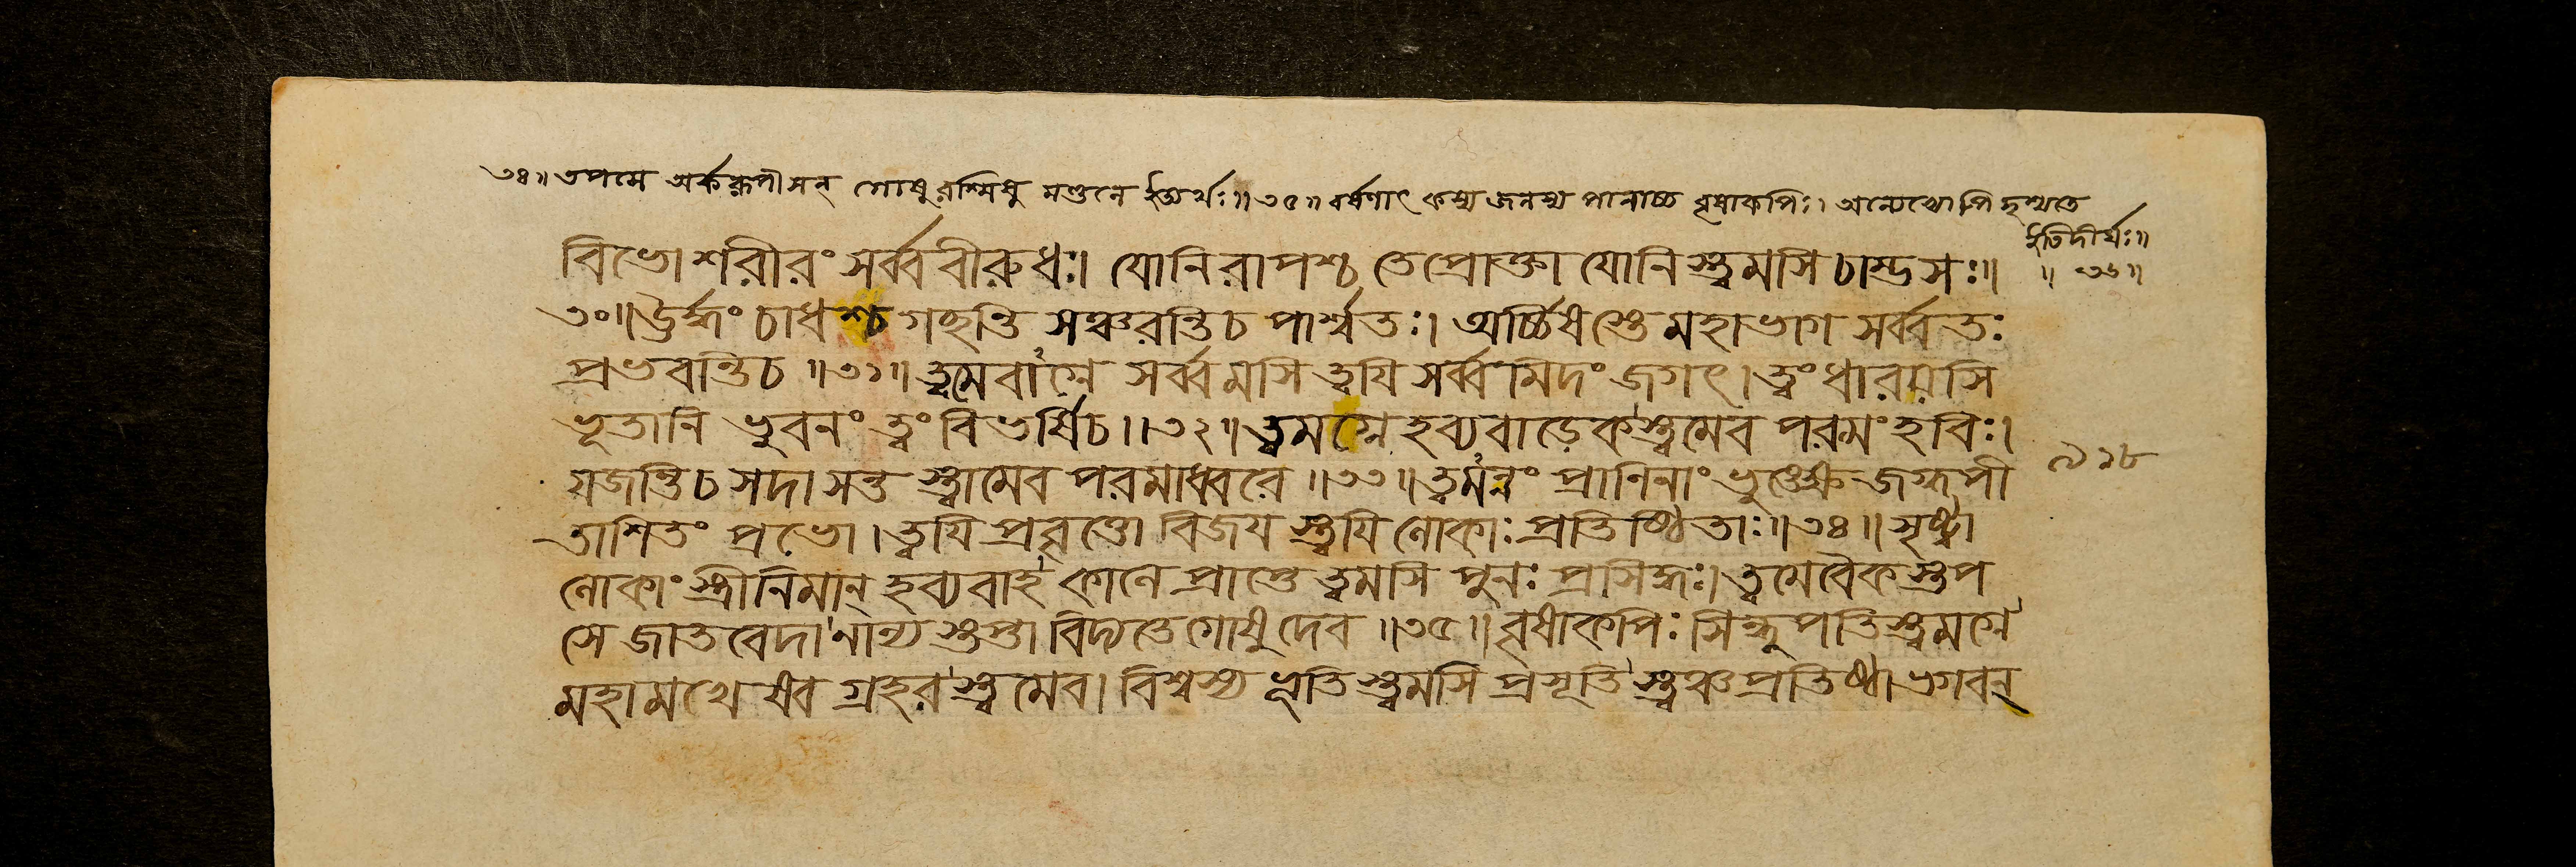 ৩৪॥ তপসে অর্করূপীসন্ গোষুরশ্মিষু মণ্ডলে ইত্যর্থঃ॥৩৫॥ বর্ষণাৎ কস্য জলস্য পানাচ্চ বৃষাকপিঃ। অন্যেষ্বোপি দৃশ্যতে
ইতিদীর্ঘঃ॥
॥ ৩৬॥
বিভো শরীরং সর্ব্ববীরুধঃ। যোনিরাপশ্চ তেপ্রোক্তা যোনিস্ত্বমসি চাম্ভসঃ॥
৩০॥ঊর্দ্ধং চাধশ্চ গচ্ছন্তি সঞ্চরন্তিচ পার্শ্বতঃ। অর্চ্চিষস্তে মহাভাগ সর্ব্বতঃ
প্রভবন্তিচ ॥৩১॥ ত্বমেবাগ্নে সর্ব্বমসি ত্বযি সর্ব্বমিদং জগৎ। ত্বং ধারয়সি
ভূতানি ভুবনং ত্বং বিভর্ষিচ।।৩২॥ ত্বমগ্নে হব্যবাড়েকস্ত্বমেব পরমং হবিঃ।
যজন্তিচ সদা সন্ত স্ত্বামেব পরমাধ্বরে ॥৩৩॥ ত্বমন্নং প্রানিনাং ভুঙ্ক্ষে জগ্ধপী
তাশিতং প্রভো। ত্বযি প্রবৃত্তো বিজয স্ত্বযি লোকাঃ প্রতিষ্ঠিতাঃ॥৩৪॥ সৃষ্ট্বা
লোকাং স্ত্রীনিমান্ হব্যবাহ কালে প্রাপ্তে ত্বমসি পুনঃ প্রসিদ্ধঃ। ত্বমেবৈকস্তপ
সে জাতবেদা নান্য স্তপ্তা বিদ্যতে গোষু দেব ॥৩৫॥ বৃষাকপিঃ সিন্ধুপতিস্ত্বমগ্নে
মহামখে ষেব গ্রহর স্ত্বমেব। বিশ্বস্য ভূতি স্ত্বমসি প্রসূতি স্ত্বঞ্চ প্রতিষ্ঠা ভগবন্
৯১৮